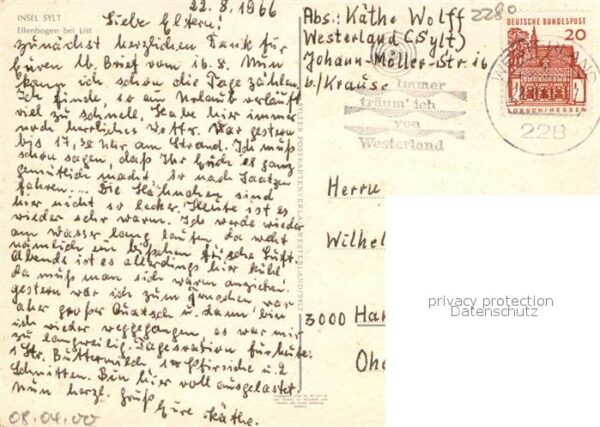 INSEL SYLT
Ellenbogen bei List
22.8.1966
Liebe Eltern!
zunächst herzlichen Dank für
Euren lb. Brief vom 16.8. Nun
kann ich schon die Tage zählen
ich finde, so ein Urlaub verläuft
viel zu schnell. Habe hier immer
noch herrliches Wetter. War gestern
bis 17,30 Uhr am Strand. Ich muß
schon sagen, daß Ihr Euch es ganz
gemütlich macht, so nach
fahren... Die Hähnchen sind
hier nicht so lecker. Heute ist es
wieder sehr warm. Ich werde wieder
am Wasser lang laufen, da weht
nämlich ein bißchen frische Luft.
Abends ist es allerdings hier kühl
da muß man sich warm anziehen.
gestern war ich zum war
aber großer Quatsch u. dann bin
ich wieder weggegangen es war mir
zu langweilig. Tagesration für heute:
1 Ltr. Buttermilch, 10 Pfirsiche u. 2
Schnitten. Bin hier voll ausgelastet.
Nun herzl. Gruß
Eure Käthe.
08.04.00
Abs: Käthe Wolff
Westerland (Sylt)
Johann-Möller-Str. 16
b/Krause
2280
DEUTSCHE BUNDESPOST
20
LORSCH/HESSEN
228
Immer
träum' ich
von
Westerland
Herrn
Wilhel
3000 Han
privacy protection
Datenschutz